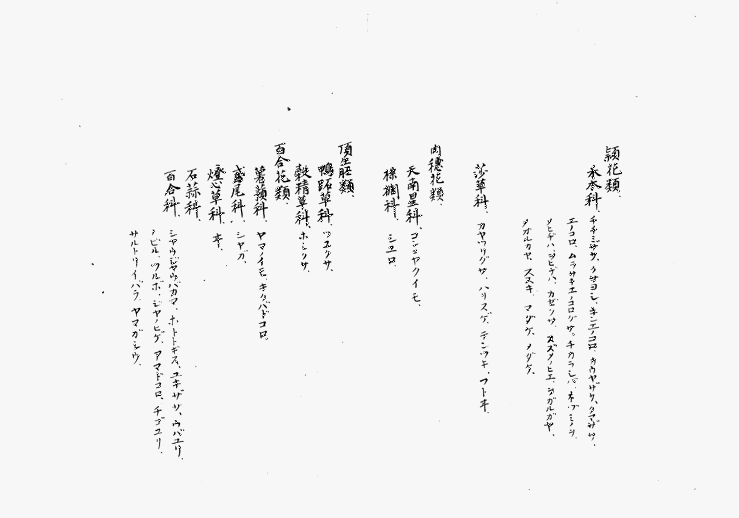 頴花類、
禾本科、チヂミザサ、クサヨシ、キンエノコロ、カウヤザサ、クマザサ、
エノコロ、ムラサキエノコログサ、チカラシバ、ネズミノヲ、
メヒヂハ、ヲヒヂハ、カゼクサ、スズメノヒエ、ヲガルカヤ、
メガルカヤ、ススキ、マダケ、メダケ、
莎草科、カヤツリグサ、ハリスゲ、テンツキ、フトヰ、
肉穗花類、
天南星科、コンニヤクイモ、
棕櫚科、シユロ、
頂生胚類、
鴨跖草科、ツユクサ、
穀精草科、ホシクサ、
百合花類、
薯蕷科、ヤマノイモ、キクバドコロ、
鳶尾科、シヤガ、
燈心草科、ヰ、
石蒜科、
百合科、シヤウジヤウバカマ、ホトトギス、ユキザサ、ウバユリ、
ノビル、ツルボ、ジヤノヒゲ、アマドコロ、チゴユリ、
サルトリイバラ、ヤマガシウ、